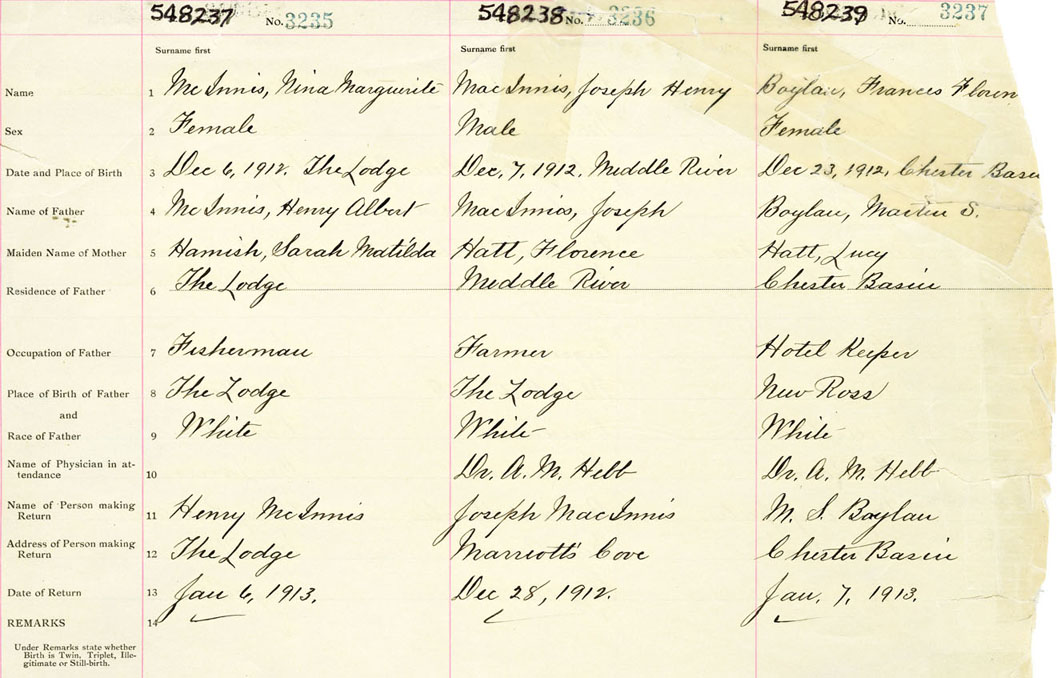 548237 No. 3235 548238 No. 3236 548239 No. 3237
Surname first Surname first Surname first
Name 1 McInnis, Nina Marguerite MacInnis, Joseph Henry Boylan, Frances Floren
Sex 2 Female Male Female
Date and Place of Birth 3 Dec 6, 1912. The Lodge Dec, 7, 1912, Middle River Dec 23, 1912, Chester Basin
Name of Father 4 McInnis, Henry Albert MacInnis, Joseph Boylan, Martin S.
Maiden Name of Mother 5 Hamish, Sarah Matilda Hatt, Florence Hatt, Lucy
Residence of Father 6 The Lodge Middle River Chester Basin
Occupation of Father 7 Fisherman Farmer Hotel Keeper
Place of Birth of Father 8 The Lodge The Lodge New Ross
and
Race of Father 9 White White White
Name of Physician in at-
tendance 10 Dr. A. M. Hebb Dr. A. M. Hebb
Name of Person making
Return 11 Henry McInnis Joseph MacInnis M. S. Boylan
Address of Person making
Return 12 The Lodge Marriott's Cove Chester Basin
Date of Return 13 Jan 6, 1913. Dec 28, 1912. Jan. 7, 1913.
REMARKS 14
Under Remarks state whether
Birth is Twin. Triplet, Ille-
gitimate or Still-birth.